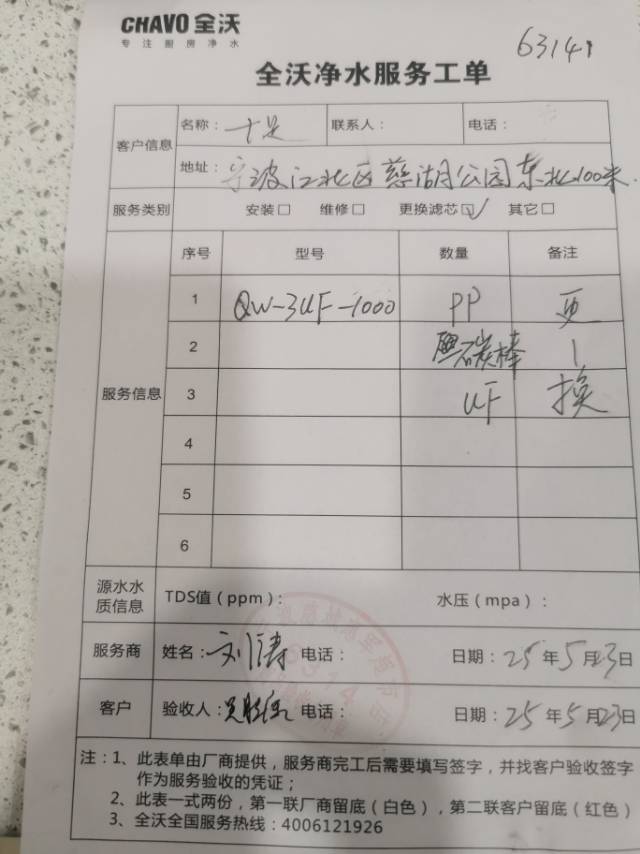 CHAVO 全沃
专注厨房净水
63141
全沃净水服务工单
客户信息
名称：十足 联系人： 电话：
地址：宁波江北区慈湖公园东北100米
服务类别 安装□ 维修□ 更换滤芯☑ 其它□
服务信息
序号 型号 数量 备注
1 QW-3UF-1000 PP 更
2 碳棒 |
3 UF 换
4
5
6
源水水质信息
TDS值（ppm）： 水压（mpa）：
服务商 姓名：刘涛 电话： 日期：25年5月23日
客户 验收人： 电话： 日期：25年5月23日
注：1、此表单由厂商提供，服务商完工后需要填写签字，并找客户验收签字
作为服务验收的凭证；
2、此表一式两份，第一联厂商留底（白色），第二联客户留底（红色）
3、全沃全国服务热线：4006121926